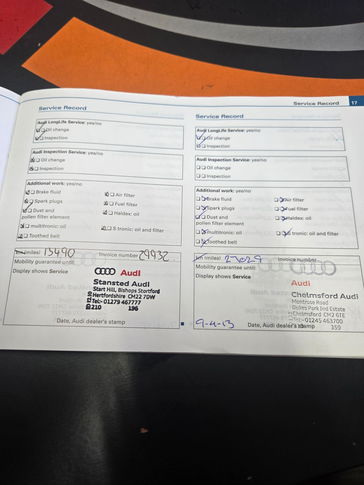 Service Record
Audi LongLife Service: yes/no
Oil change
Inspection
Audi Inspection Service: yes/no
Oil change
Inspection
Additional work: yes/no
Brake fluid
Air filter
Spark plugs
Fuel filter
Dust and
pollen filter element
Haldex: oil
multitronic: oil
S tronic: oil and filter
Toothed belt
km (miles) 15490
Invoice number 29932
Mobility guaranteed until
Display shows Service
Audi
Stansted Audi
Start Hill, Bishops Stortford
Hertfordshire CM22 7DW
Tel:- 01279 467777
210 196
Date, Audi dealer's stamp
Service Record 17
Service Record
Audi LongLife Service: yes/no
Oil change
Inspection
Audi Inspection Service: yes/no
Oil change
Inspection
Additional work: yes/no
Brake fluid
Air filter
Spark plugs
Fuel filter
Dust and
pollen filter element
Haldex: oil
multitronic: oil
S tronic: oil and filter
Toothed belt
km (miles)
Invoice number
Mobility guaranteed until
Display shows Service
Audi
Chelmsford Audi
Montrose Road
Dukes Park Ind Estate
Chelmsford CM2 6TE
Tel:- 01245 463700
159
9-4-13
Date, Audi dealer's stamp